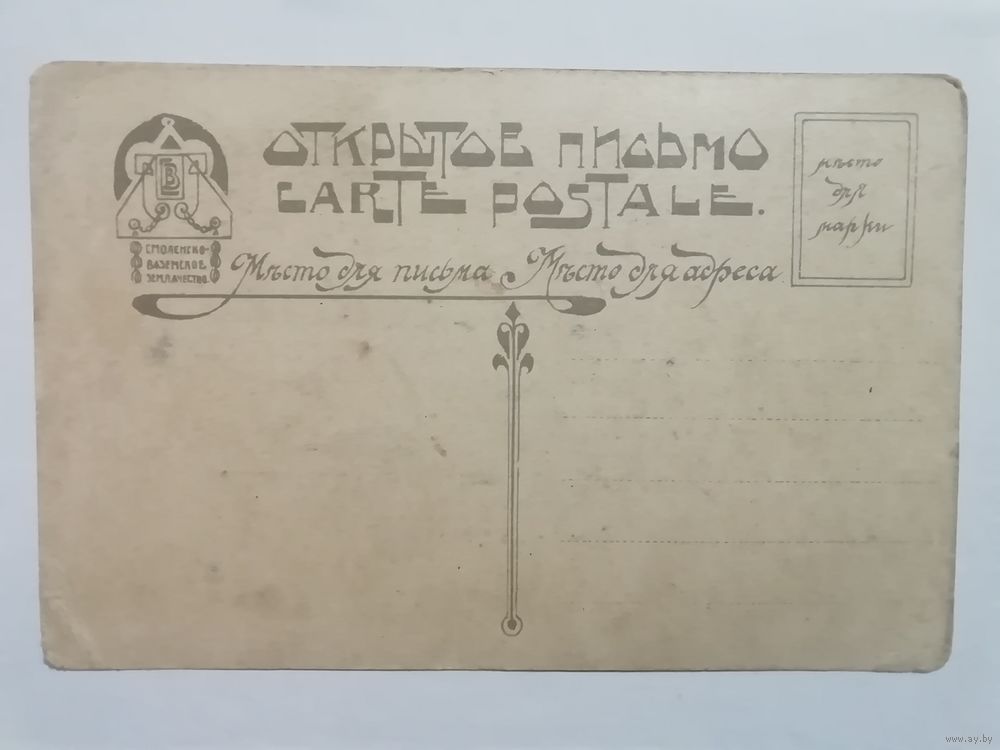 ОТКРЫТОЕ ПИСЬМО
CARTE POSTALE.
СМОЛЕНСКО-
ВЯЗЕМСКОЕ
ЗЕМЛЯЧЕСТВО
Мѣсто для письма
Мѣсто для адреса
мѣсто
для
марки
www.ay.by